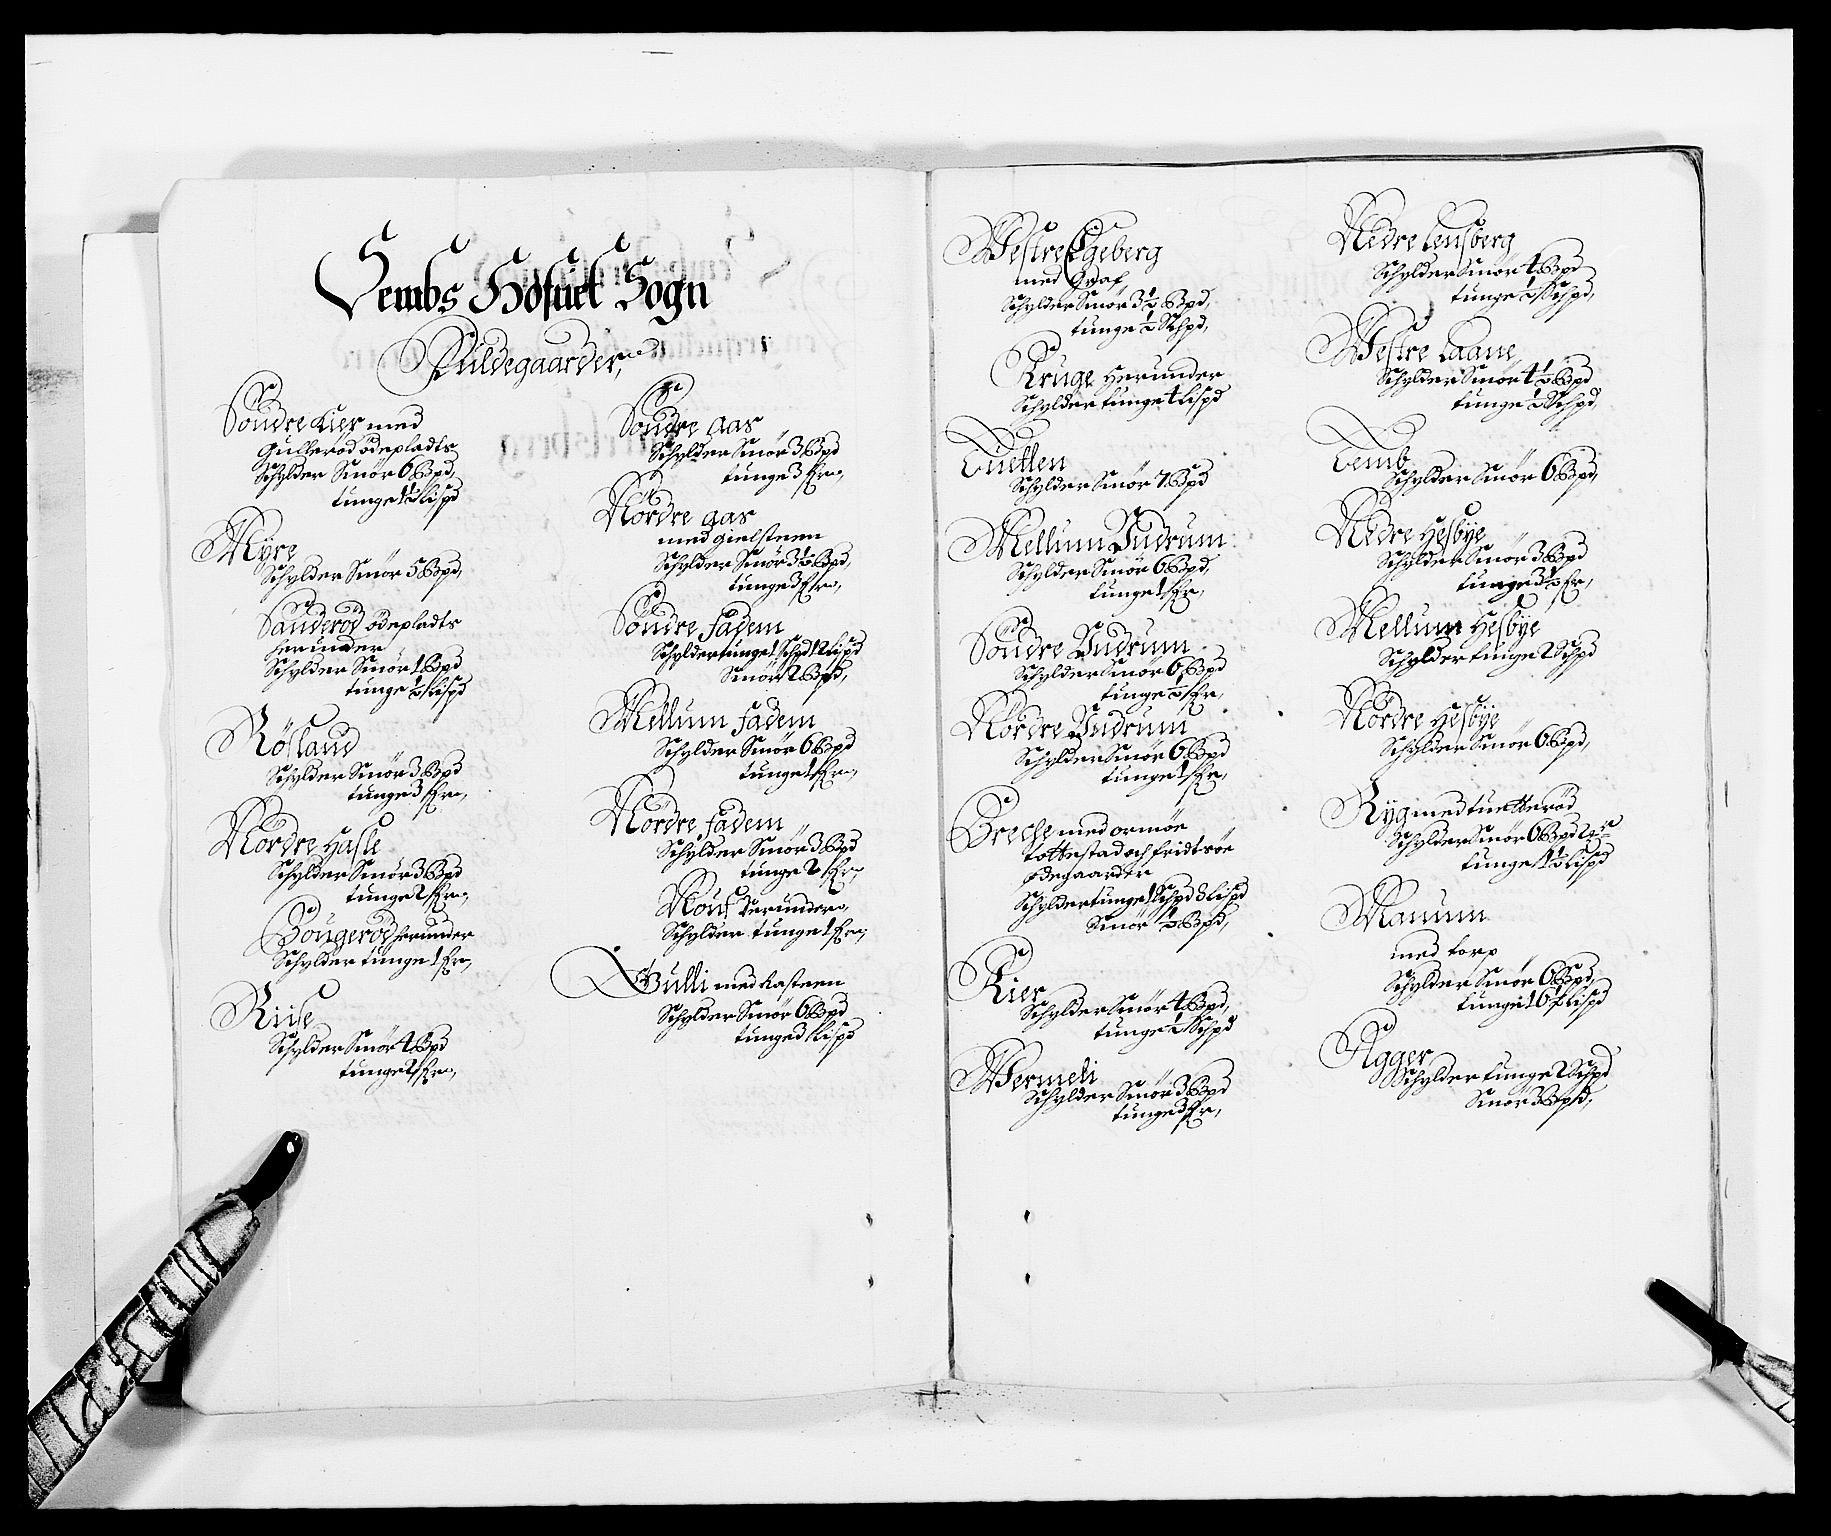 Sembs Hofuet Sogn
Fuldegaarder,
Söndre Kier med
Gullerod ödepladts
Schylder Smör 6 Bpd,
tunge 1½ Lispd
Myre
Schylder Smör 5 Bpd,
Sanderöd ödepladts
herunder
Schylder Smör 1 Bpd
tunge ½ Lispd
Röfland
Schylder Smör 3 Bpd
tunge 3 fr,
Nördre Hasle
Schylder Smör 3 Bpd
tunge 2 fr,
Gougeröd herunder
Schylder tunge 1 fr,
Riise
Schylder Smör 4 Bpd
tunge 2 fr,
Söndre Aas
Schylder Smör 3 Bpd
tunge 3 fr,
Nördre Aas
med Gielsteen
Schylder Smör 3½ Bpd,
tunge 3 fr,
Söndre Fadem
Schylder tunge 1 Schpd 12 Lispd
Smör 2 Bpd,
Mellum Fadem
Schylder Smör 6 Bpd
tunge 1 fr,
Nördre Fadem
Schylder Smör 3 Bpd
tunge 2 fr,
Mouf herunder,
Schylder tunge 1 fr,
Gulli med Kasteen
Schylder Smör 6 Bpd
tunge 3 Lispd
Westre Egeberg
med Graf,
Schylder Smör 3½ Bpd,
tunge ½ Schpd,
Kruge herunder
Schylder tunge 4 Lispd
Tuetten
Schylder Smör 7 Bpd
Mellum Undrum
Schylder Smör 6 Bpd,
tunge 1 fr,
Söndre Undrum
Schylder Smör 6 Bpd
tunge ½ fr,
Nördre Undrum
Schylder Smör 6 Bpd
tunge 1 fr,
Breche med ormöe
tottestad och fridtsöe
Ödegaarder
Schylder tunge 1 Schpd 8 Lispd
Smör ½ Bpd,
Kier
Schylder Smör 4 Bpd,
tunge ½ Schpd
Wermeli
Schylder Smör 3 Bpd
tunge 3 fr,
Nedre Lensberg
Schylder Smör 4 Bpd
tunge ½ Schpd,
Westre Laane,
Schylder Smör 4½ Bpd
tunge ½ Schpd,
Semb
Schylder Smör 6 Bpd,
Nedre Hesbye
Schylder Smör 3 Bpd
tunge 3½ fr,
Mellum Hesbye
Schylder tunge 2 Schpd
Nördre Hesbye
Schylder Smör 6 Bpd,
Ryg med tuetteröd
Schylder Smör 6 Bpd
tunge 1½ Lispd
Manum
med torp
Schylder Smör 6 Bpd,
tunge 16 Lispd
Agger
Schylder tunge 2 Schpd
Smör 3 Bpd,